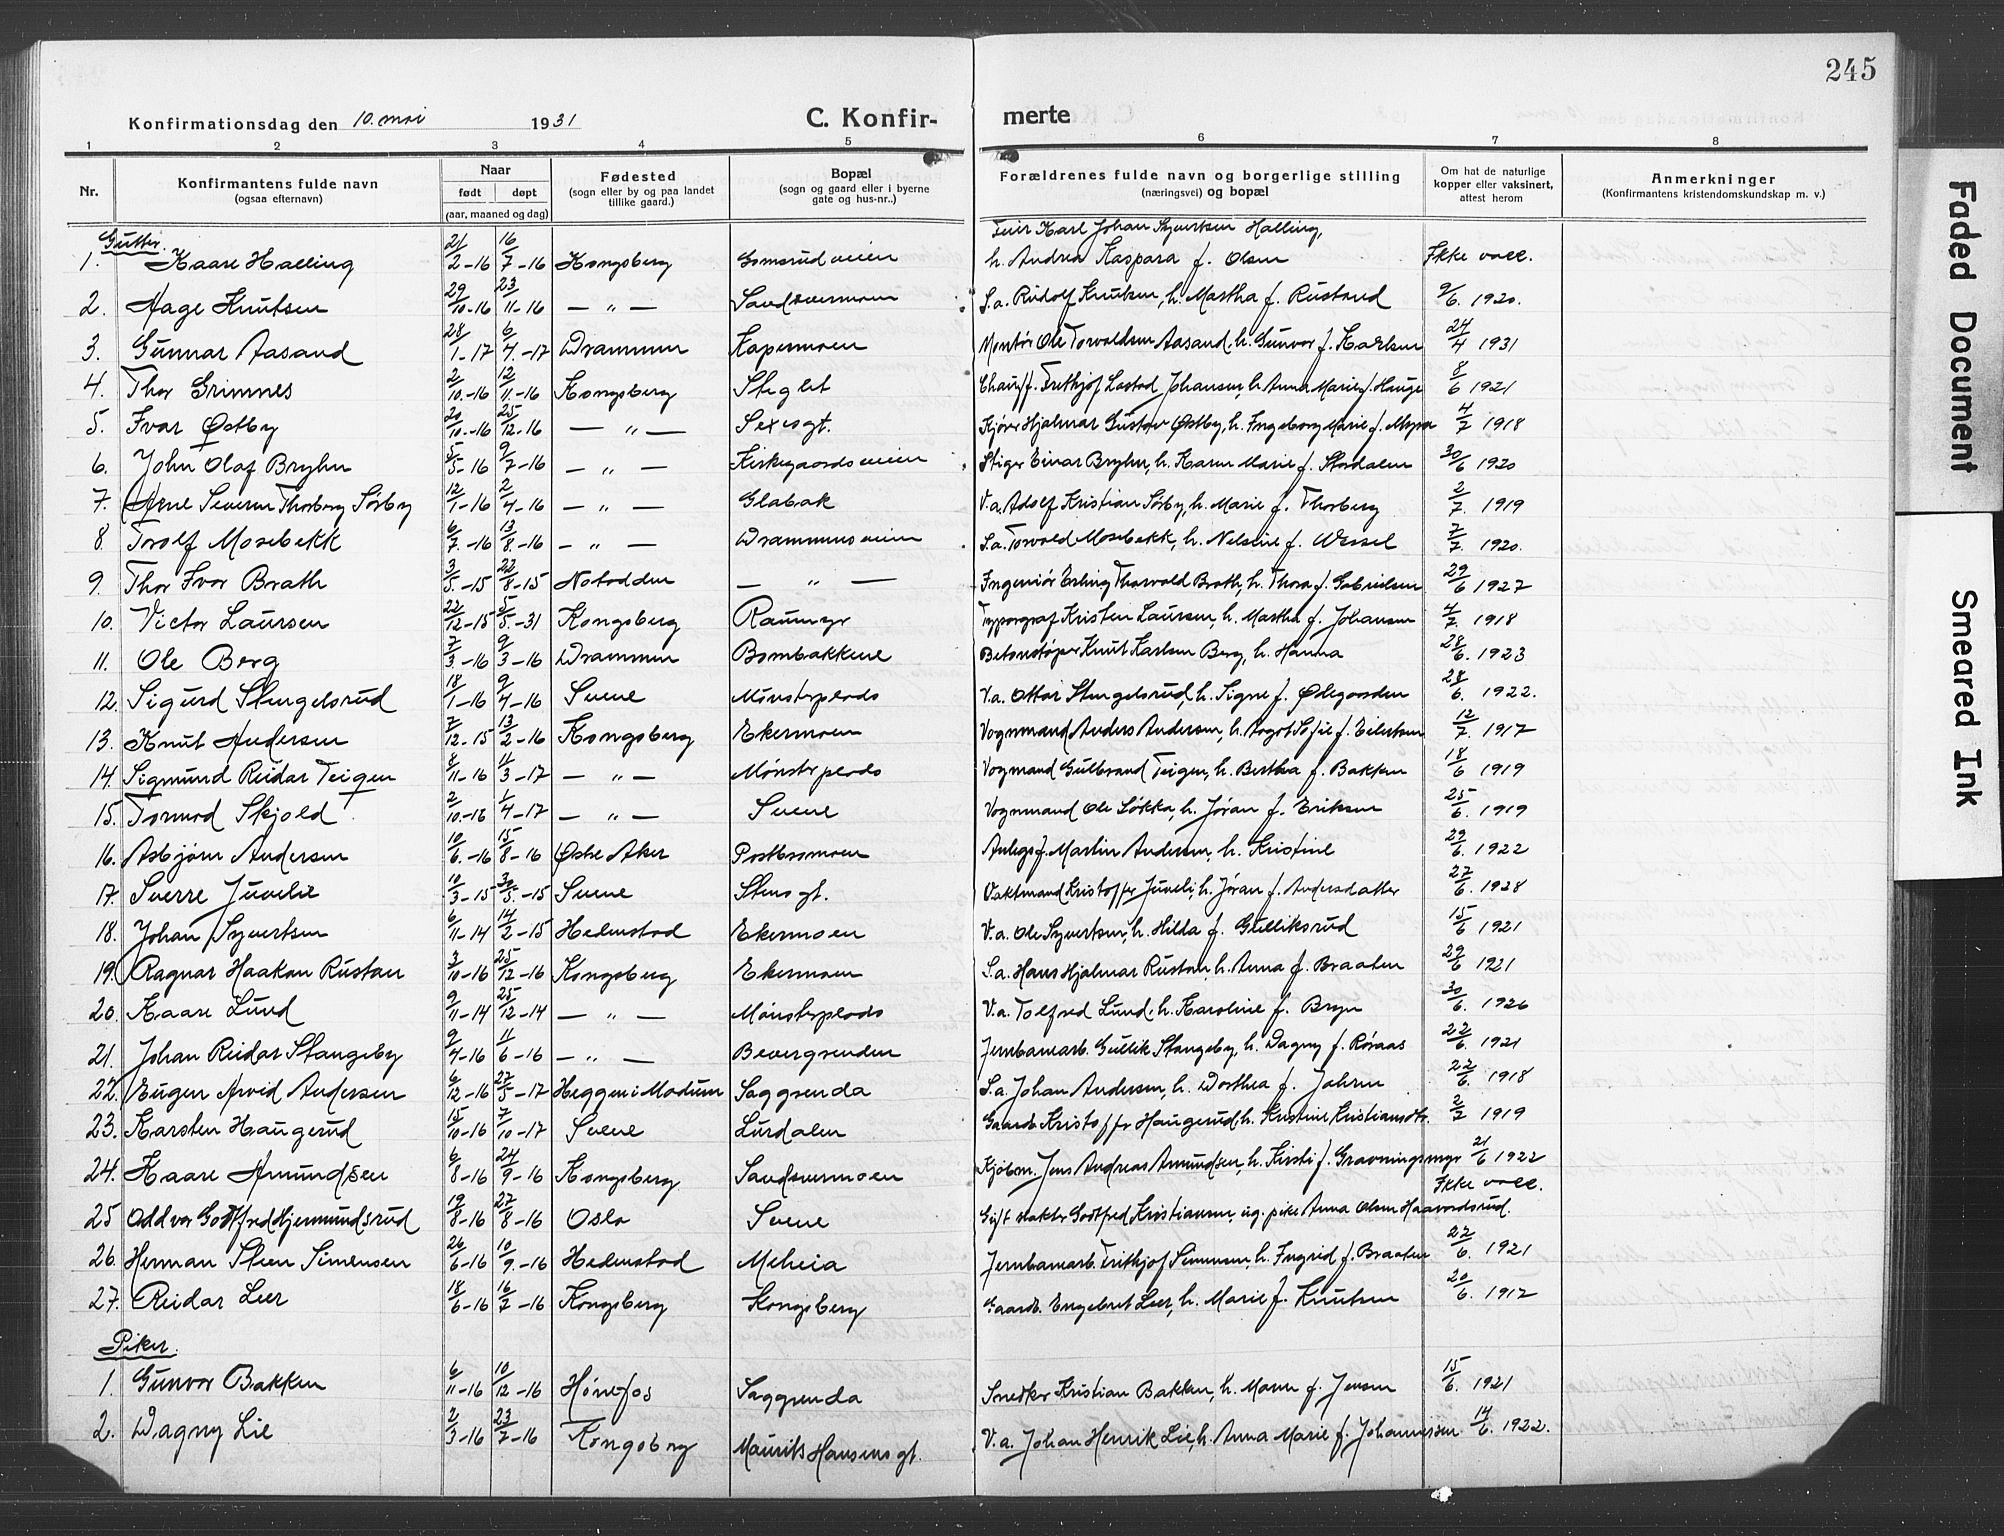 245
Konfirmationsdag den 10. mai 1931 C. Konfir- merte
1 2 3 4 5 6 7 8
Nr. Konfirmantens fulde navn (ogsaa efternavn) Naar født døpt (aar, maaned og dag) Fødested (sogn eller by og paa landet tillike gaard.) Bopæl (sogn og gaard eller i byerne gate og hus-nr..) Forældrenes fulde navn og borgerlige stilling (næringsvei) og bopæl Om hat de naturlige kopper eller vaksinert, attest herom Anmerkninger (Konfirmantens kristendomskundskap m. v.)
Gutter.
1. Kaare Halling 21/2-16 16/7-16 Kongsberg Gomsrudveien Feier Karl Johan Syvertsen Halling, h. Andrea Kaspara f. Olsen Ikke vacc.
2. Aage Knutsen 29/10-16 23/11-16 — " — Sandsvermoen S.a. Rudolf Knutsen, h. Martha f. Rustand 9/6. 1920.
3. Gunnar Aasand 28/1-17 6/4-17 Drammen Kapermoen Montør Ole Torvaldsen Aasand, h. Gunvor f. Karlsen 24/4 1931
4. Thor Grimnes 2/10-16 12/11-16 Kongsberg Steglet Chauff. Frithjof Lostad Johansen, h. Anna Marie f. Hauge 8/6 1921
5. Ivar Østby 20/10-16 25/12-16 — " — Sexesgt. Kjører Hjalmar Gustav Østby, h. Ingeborg Marie f. 4/7 1918
6. John Olaf Bryhn 5/5-16 9/7-16 — " — Kirkegaardsveien Stiger Einar Bryhn, h. Karen Marie f. Stordalen 30/6 1920
7. Arne Severin Thorberg Sørby 12/1-16 2/4-16 — " — Glabak V.a. Adolf Kristian Sørby, h. Marie f. Thorberg 2/7. 1919
8. Torolf Mosebekk 6/7-16 13/8-16 — " — Drammensveien S.a. Torvald Mosebekk, h. Nelsine f. Wessel 7/7. 1920.
9. Thor Ivar Brath 3/5-15 22/8-15 Notodden — " — Ingeniør Erling Thorvald Brath, h. Thora f. Gabrielsen 29/6 1927
10. Victor Laursen 22/12-15 5/5-31 Kongsberg Raumyr Typograf Kristen Laursen, h. Martha f. Johansen 4/7. 1918
11. Ole Berg 7/3-16 9/3-16 Drammen Bombakkene Betonstøper Knut Karlsen Berg, h. Hanna 28/6. 1923
12. Sigurd Stengelsrud 18/1-16 9/4-16 Svene Mønsterplads V.a. Ottar Stengelsrud, h. Signe f. Ødegaarden 28/6. 1922.
13. Knut Andersen 7/12-15 13/2-16 Kongsberg Ekermoen Vognmand Anders Andersen, h. Aagot Sofie f. Eilertsen 12/7. 1917
14. Sigmund Reidar Teigen 8/11-16 11/3-17 — " — Mønsterplads Vogmand Gulbrand Teigen, h. Bertha f. Bakken 18/6 1919
15. Tormod Skjold 2/10-16 1/4-17 — " — Svene Vognmand Ole Løkka, h. Jøran f. Eriksen 25/6. 1919
16. Asbjørn Andersen 10/6-16 15/8-16 Østre Aker Postbromoen Anlegsf. Martin Andersen, h. Kristine 29/6. 1922
17. Sverre Juvelie 10/3-15 30/5-15 Svene Stensgt. Vaktmand Kristoffer Juveli, h. Jøran f. Andersdatter 27/6. 1928
18. Johan Syvertsen 6/11-14 14/2-15 Hedenstad Ekermoen V.a. Ole Syvertsen, h. Hilda f. Gulliksrud 15/6 1921
19. Ragnar Haakon Rustan 3/10-16 25/12-16 Kongsberg Ekermoen S.a. Hans Hjalmar Rustan, h. Anna f. Braaten 29/6 1921
20. Kaare Lund 9/11-14 25/12-14 — " — Mønsterplads V.a. Tolfred Lund, h. Karoline f. Bryn 30/6. 1926
21. Johan Reidar Stangeby 9/4-16 11/6-16 — " — Bevergrenden Jernbanearb. Gullik Stangeby, h. Dagny f. Røraas 22/6. 1921
22. Eugen Arvid Andersen 6/12-16 27/5-17 Heggen i Modum Saggrenda S.a. Johan Andersen, h. Dorthea f. Johren 22/6. 1918
23. Karsten Haugerud 15/10-16 7/10-17 Svene Lurdalen Gaardb. Kristoffer Haugerud, h. Kristine Kristiansdtr. 2/7 1919
24. Kaare Amundsen 6/8-16 24/9-16 Kongsberg Sandsvermoen Kjøbm. Jens Andreas Amundsen, h. Kirsti f. Gravningsmyr 21/6 1922
25 Oddvar Godtfred Hjermundsrud 19/8-16 27/8-16 Oslo Svene Gift slakter Godtfred Kristiansen, ug. pike Anna Olsen Haavardsrud. Ikke vacc.
26. Herman Steen Simensen 26/6-16 10/9-16 Hedenstad Meheia Jernbanearb. Frithjof Simensen, h. Ingrid f. Braaten 22/6. 1921
27. Reidar Leer 18/6-16 16/7-16 Kongsberg Kongsberg Gaardb. Engebret Leer, h. Marie f. Knutsen 20/6. 1917
Piker.
1. Gunvor Bakken 6/11-16 10/12-16 Hønefos Saggrenda Snedker Kristian Bakken, h. Maren f. Jensen 15/6. 1921
2. Dagny Lie 2/3-16 23/7-16 Kongsberg Maurits Hansens gt. V.a. Johan Henrik Lie, h. Anna Marie f. Johannesen 14/6. 1922.
Faded Document
Smeared Ink